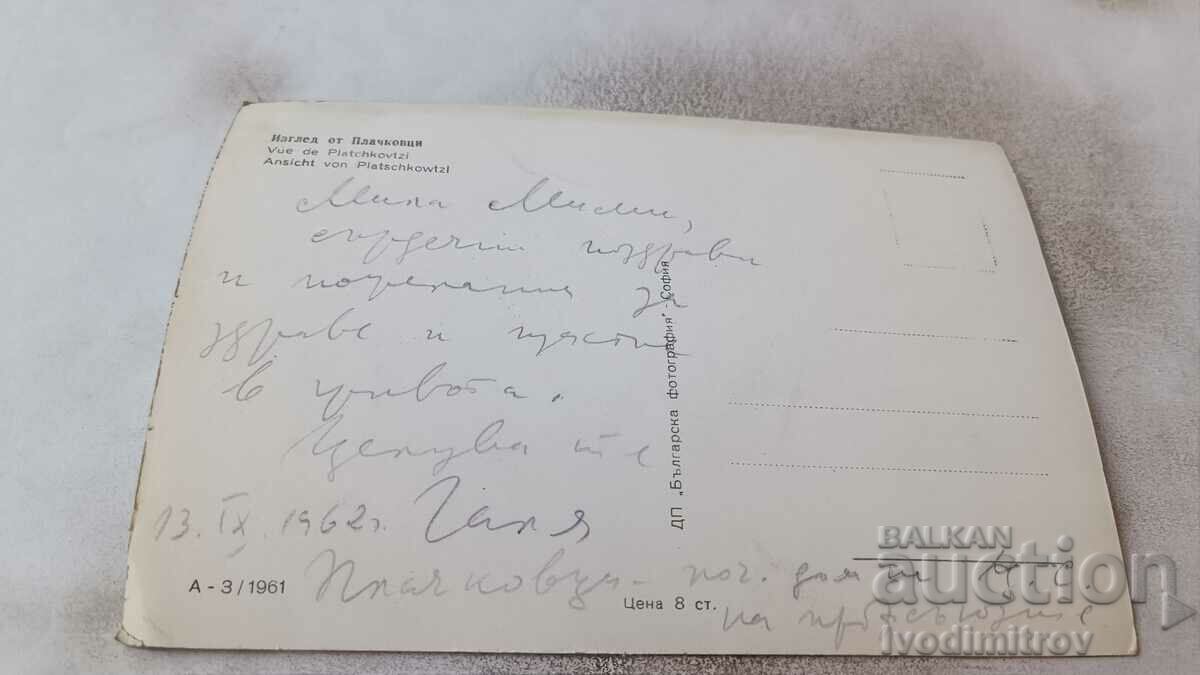 Изглед от Плачковци
Vue de Platchkovtzi
Ansicht von Platschkowtzi
Мила Мими,
сърдечни поздрави
и пожелания за
здраве и щастие
в живота.
Целува те
13. IX. 1962 г. Галя
Плачковци - поч. дом
на профсъюзите
А - 3/1961
Цена 8 ст.
ДП „Българска фотография" - София
BALKAN
auction
ivodimitrov